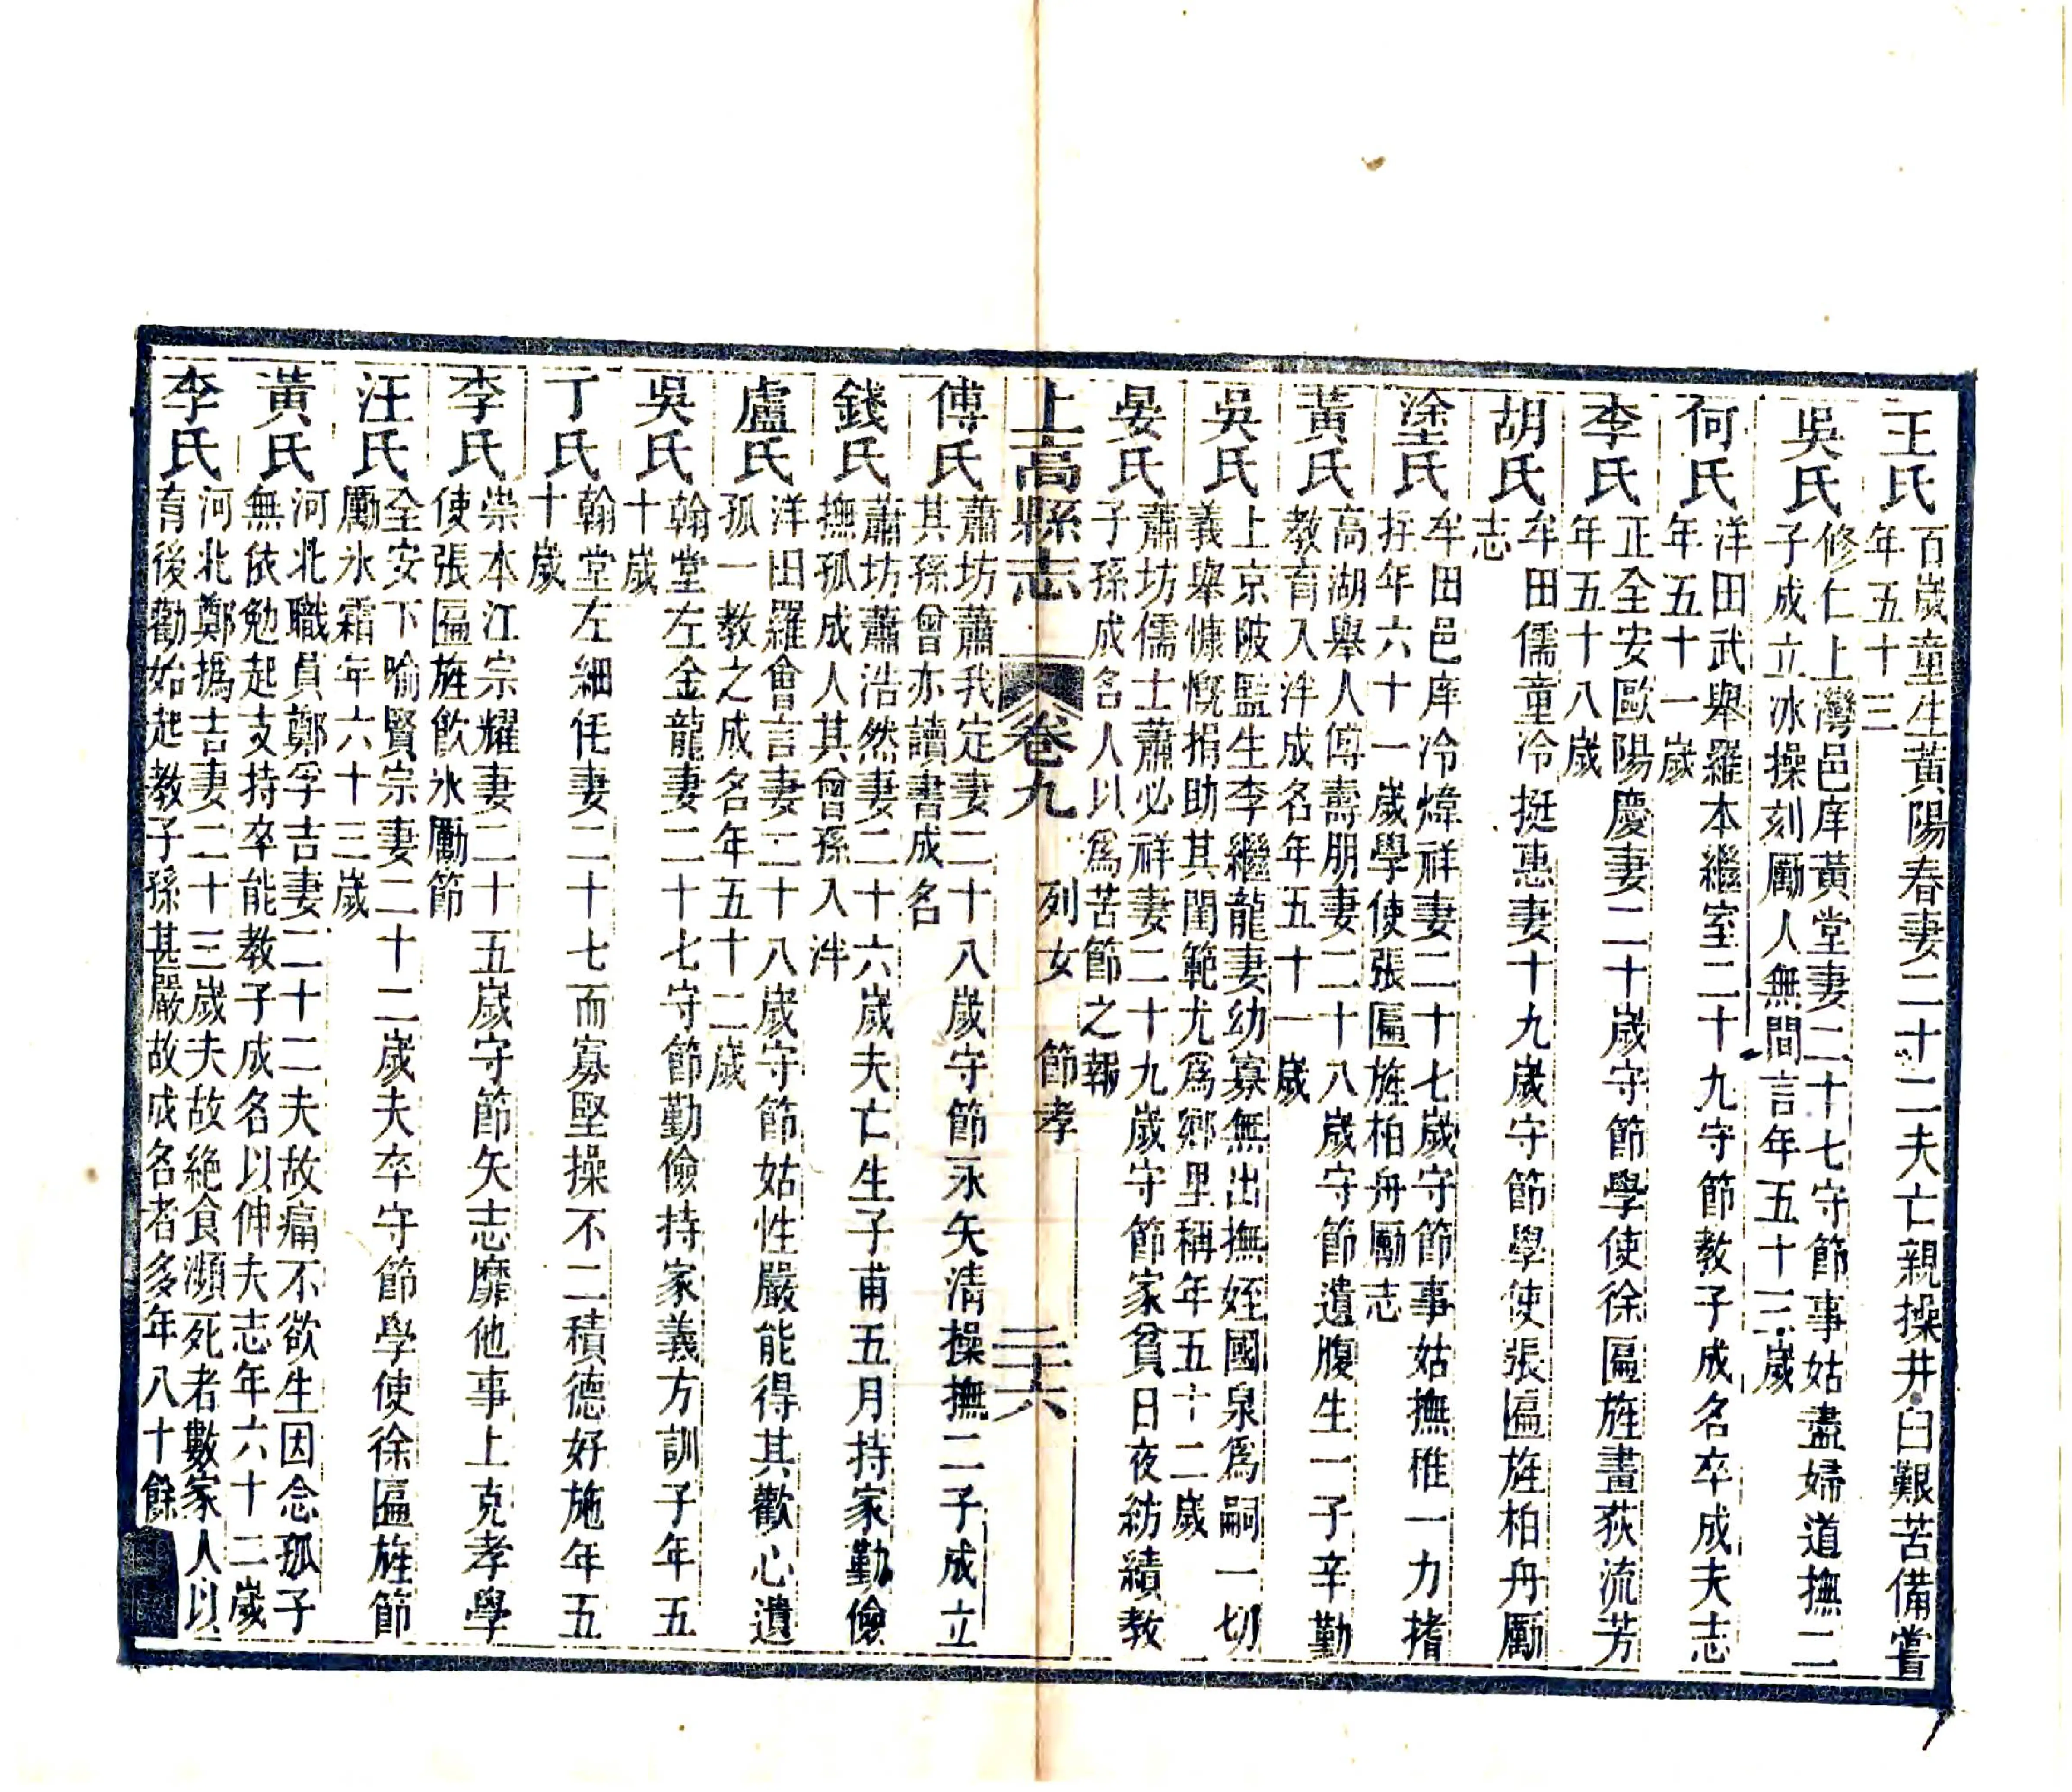 王氏
百歲童生黃陽春妻二十二夫亡親操井臼艱苦備嘗
年五十三
吳氏
修仁上灣邑庠黃堂妻二十七守節事姑盡婦道撫二
子成立冰操刻勵人無間言年五十三歲
何氏
洋田武舉羅本繼室二十九守節教子成名卒成夫志
年五十一歲
李氏
正全安歐陽慶妻二十歲守節學使徐匾旌畫荻流芳
年五十八歲
胡氏
牟田儒童冷挺惠妻十九歲守節學使張匾旌柏舟勵
志
塗氏
牟田邑庠冷煒祥妻二十七歲守節事姑撫稚一力撐
持年六十一歲學使張匾旌柏舟勵志
黃氏
高湖舉人傅壽朋妻二十八歲守節遺腹生一子辛勤
教育入泮成名年五十一歲
吳氏
上京陂監生李繼龍妻幼寡無出撫姪國泉爲嗣一切
義舉慷慨捐助其閨範尤爲鄉里稱年五十二歲
晏氏
蕭坊儒士蕭必祥妻二十九歲守節家貧日夜紡績教
子孫成名人以爲苦節之報
上高縣志 卷九 列女 節孝 三十六
傅氏
蕭坊蕭我定妻二十八歲守節永矢清操撫二子成立
其孫曾亦讀書成名
錢氏
蕭坊蕭浩然妻二十六歲夫亡生子甫五月持家勤儉
撫孤成人其曾孫入泮
盧氏
洋田羅會言妻二十八歲守節姑性嚴能得其歡心遺
孤一教之成名年五十二歲
吳氏
翰堂左金龍妻二十七守節勤儉持家義方訓子年五
十歲
丁氏
翰堂左細任妻二十七而寡堅操不二積德好施年五
十歲
李氏
崇本江宗耀妻二十五歲守節矢志靡他事上克孝學
使張匾旌飲氷勵節
汪氏
全安下喻賢宗妻二十二歲夫卒守節學使徐匾旌節
勵氷霜年六十三歲
黃氏
河北職員鄭孚吉妻二十二夫故痛不欲生因念孤子
無依勉起支持卒能教子成名以伸夫志年六十二歲
李氏
河北鄭撝吉妻二十三歲夫故絶食瀕死者數家人以
育後勸始起教子孫甚嚴故成名者多年八十餘